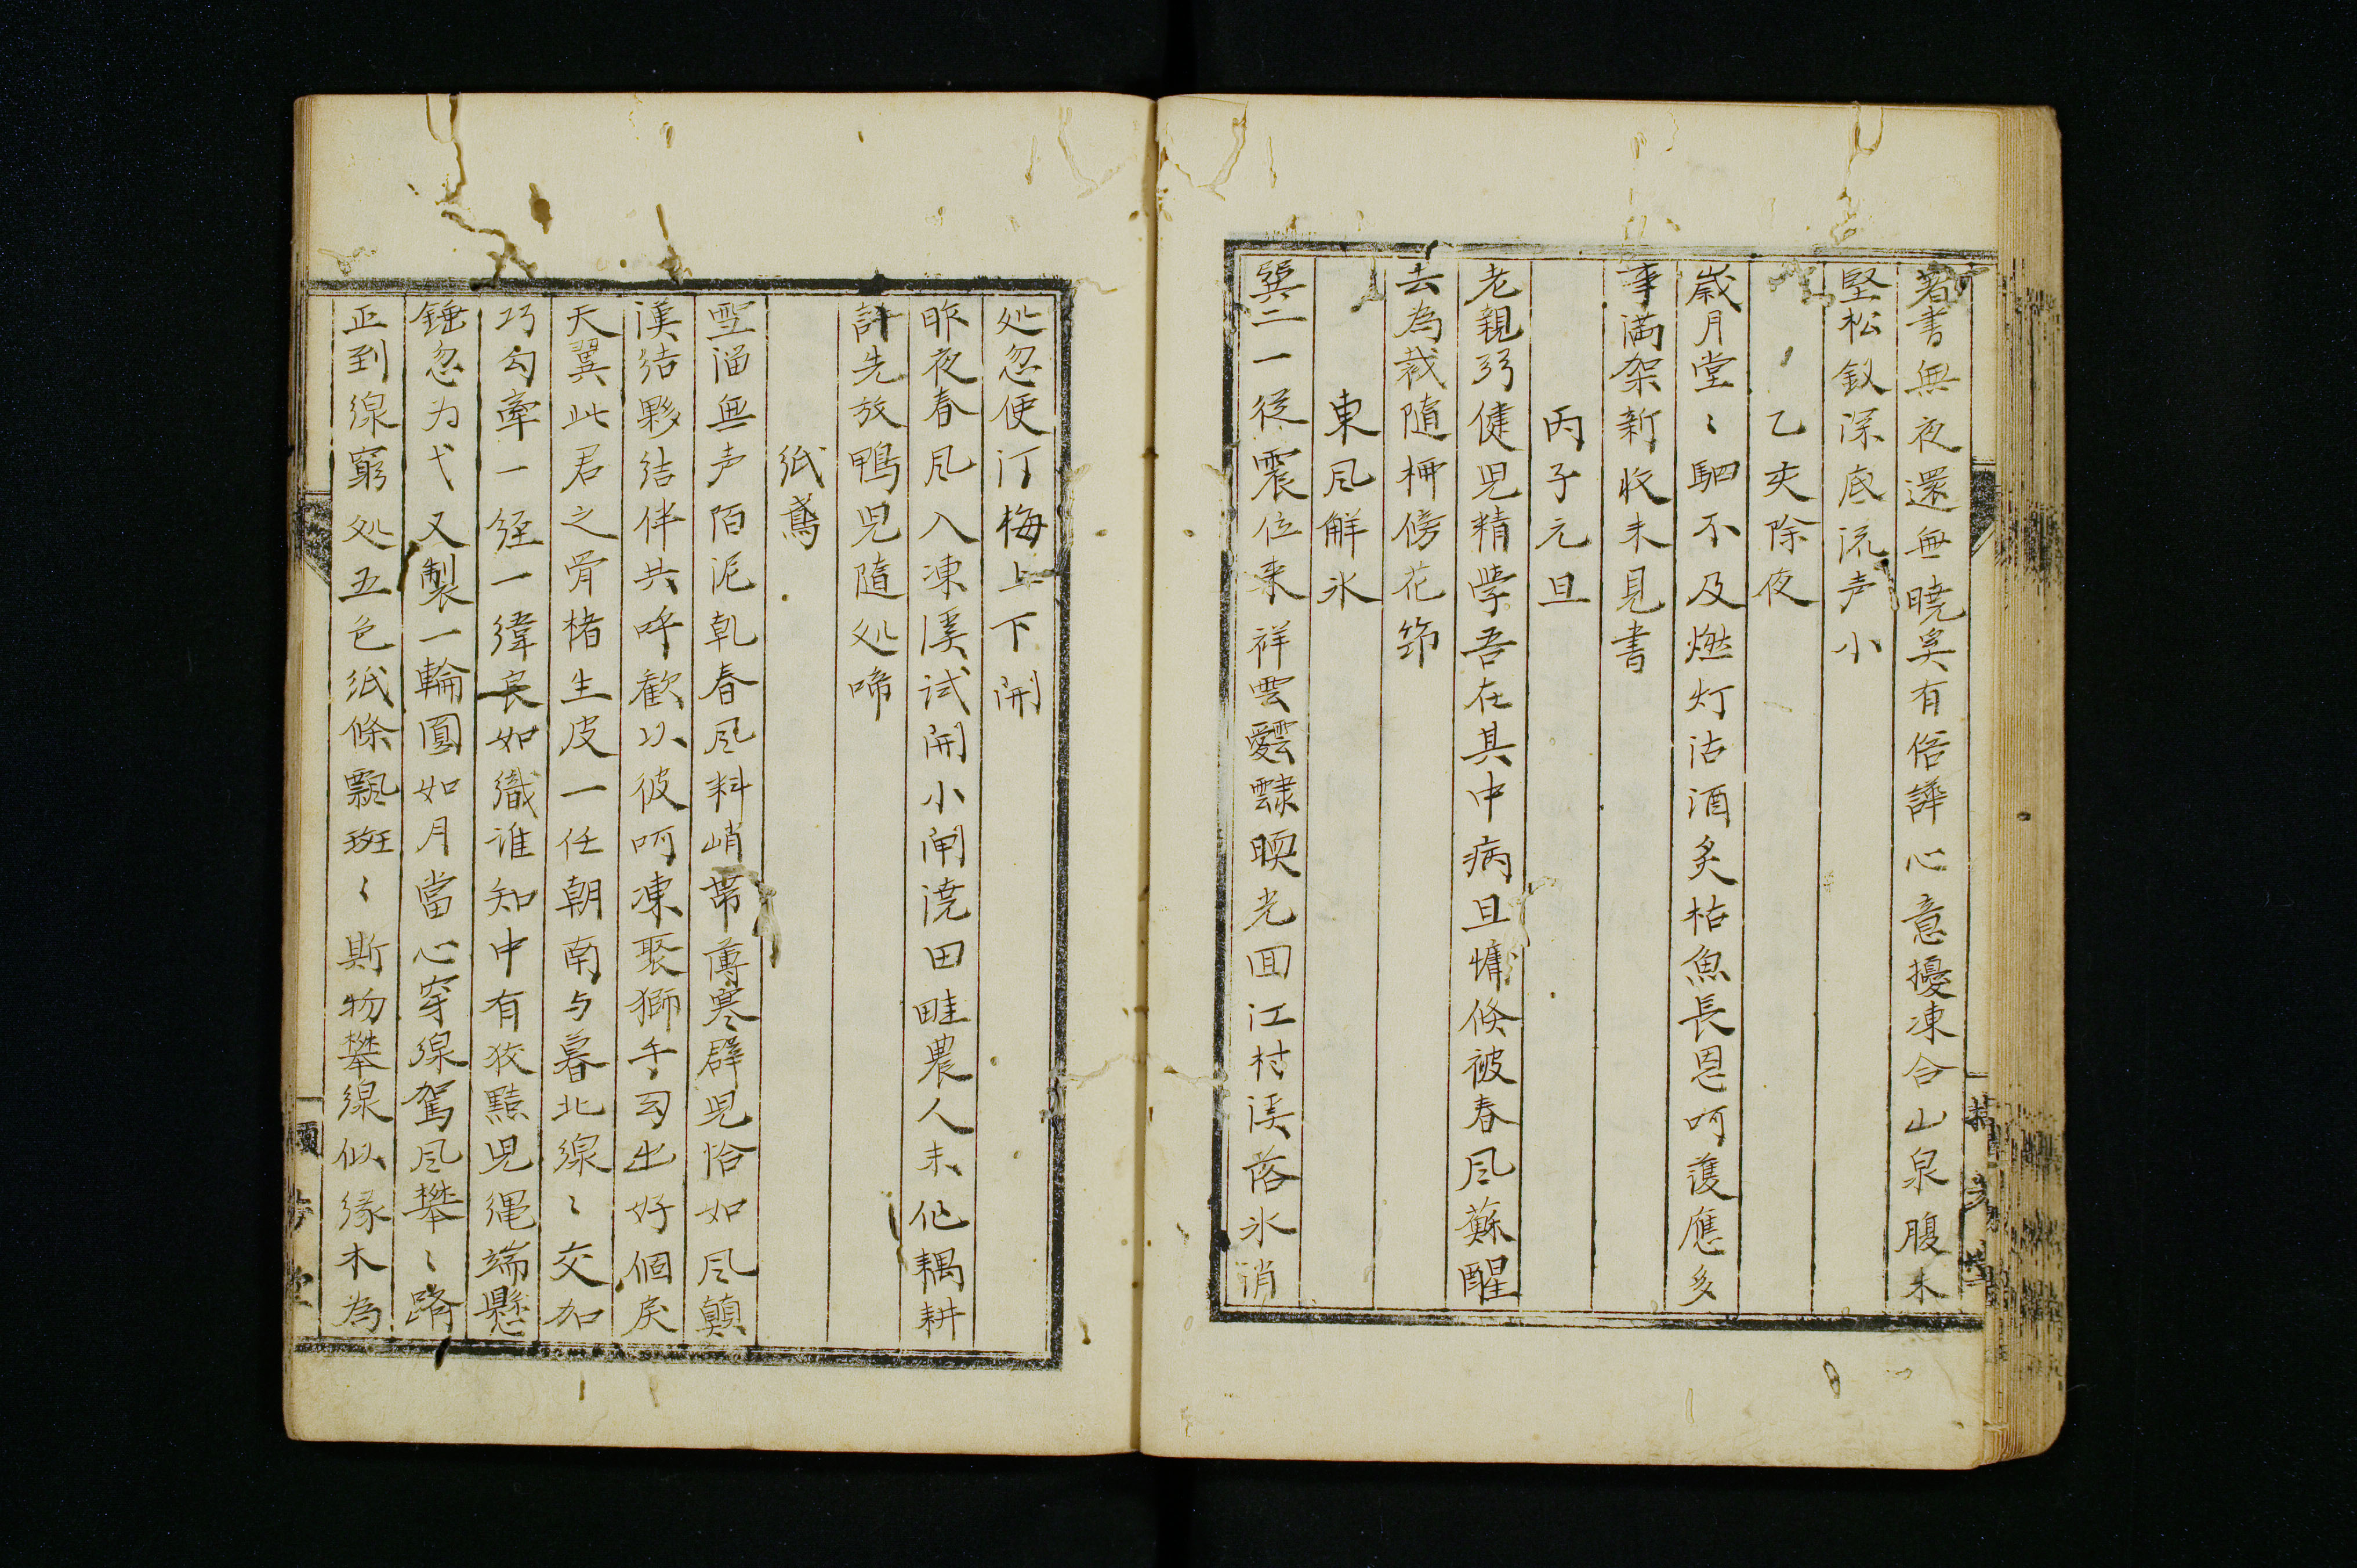 著書無夜還無曉奚有俗譁心意擾凍合山泉腹未
堅松釵深底流声小
乙亥除夜
歳月堂〻駟不及燃灯沽酒炙枯魚長恩呵護應多
事満架新收未見書
丙子元旦
老親弥健児精学吾在其中病且慵倏被春风蘇醒
去為裁隨柵傍花筇
東风解氷
巽二一從震位来祥雲靉靆暎光回江村渓落氷消
処忽便汀梅上下開
昨夜春风入凍溪试開小閘澆田畦農人未化耦耕
計先放鴨児隨処啼
紙鳶
雪溜無声陌泥乾春风料峭帯薄寒群児恰如风顛
漢结夥结伴共呼歓以彼呵凍聚獅手幻出好個戾
天翼此君之骨楮生皮一任朝南与暮北線〻交加
巧勾牽一經一緯良如織谁知中有狡黠児绳端懸
錘忽为弋又製一輪圓如月當心穿線駕风攀〻路
正到線窮処五色紙條飄斑〻斯物攀線似縁木為